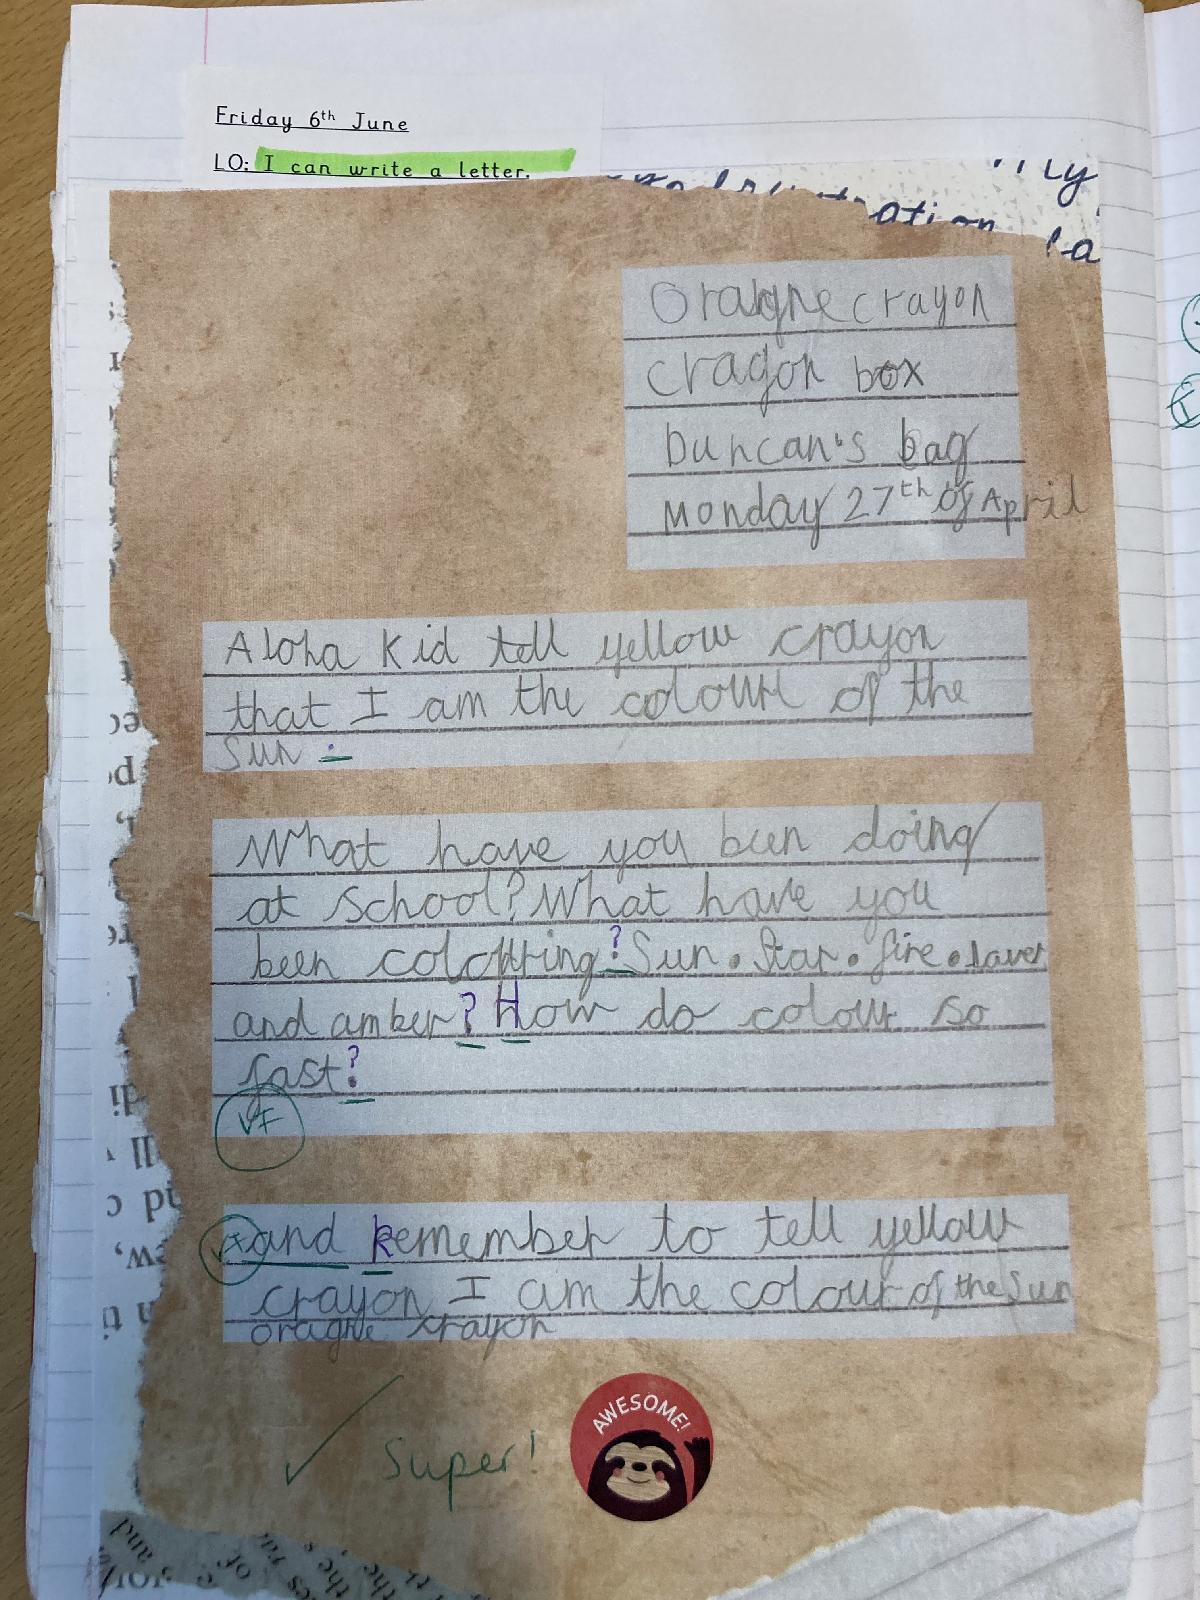 Friday 6th June
LO: I can write a letter.
Oragne crayon
cragon box
Duncan's bag
Monday 27th of April
Aloha Kid tell yellow crayon
that I am the colour of the
Sun.
What have you been doing
at School? What have you
been colouring? Sun. Star. fire. laver
and amber? How do colour so
fast?
VF
VF and Remember to tell yellow
crayon I am the colour of the Sun
oragne crayon
Super!
AWESOME!